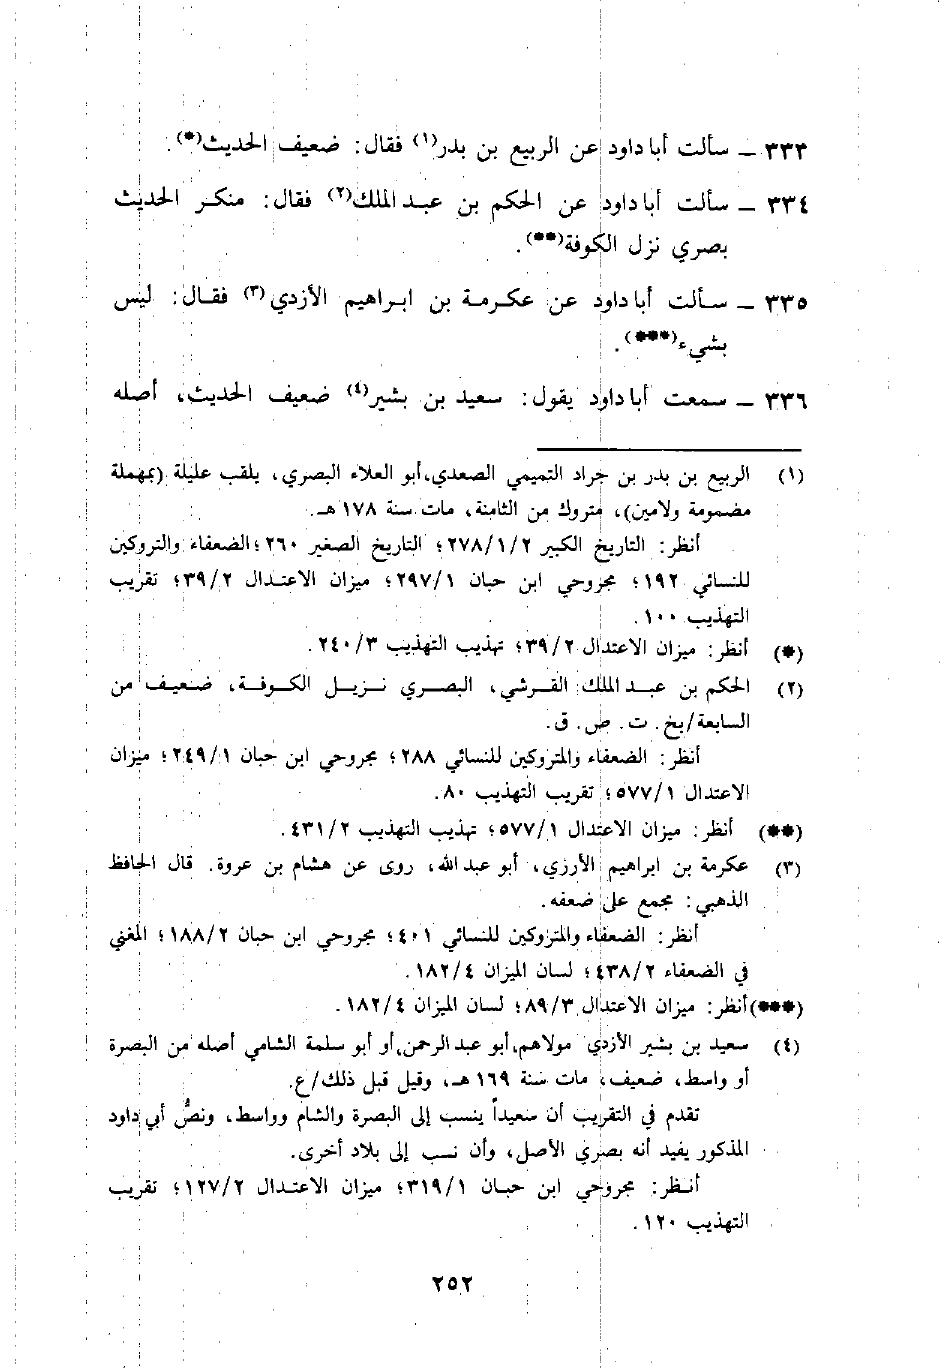 ٣٣٣ ــ سألت أبا داود عن الربيع بن بدر(١) فقال: ضعيف الحديث(*).
٣٣٤ ــ سألت أبا داود عن الحكم بن عبد الملك(٢) فقال: منكر الحديث
بصري نزل الكوفة(**).
٣٣٥ ــ سألت أبا داود عن عكرمة بن ابراهيم الأزدي(٣) فقال: ليس
بشيء(***).
٣٣٦ ــ سمعت أبا داود يقول: سعيد بن بشير(٤) ضعيف الحديث، أصله
(١) الربيع بن بدر بن جراد التميمي الصعدي، أبو العلاء البصري، يلقب عليلة (بمهملة
مضمومة ولامين)، متروك من الثامنة، مات سنة ١٧٨ هـ.
أنظر: التاريخ الكبير ٢/١/٢٧٨؛ التاريخ الصغير ٢٦٠؛ الضعفاء والتروكين
للنسائي ١٩٢؛ مجروحي ابن حبان ١/٢٩٧؛ ميزان الاعتدال ٢/٣٩؛ تقريب
التهذيب ١٠٠.
(*) أنظر: ميزان الاعتدال ٢/٣٩؛ تهذيب التهذيب ٣/٢٤٠.
(٢) الحكم بن عبد الملك القرشي، البصري نزيل الكوفة، ضعيف من
السابعة/بخ. ت. ص. ق.
أنظر: الضعفاء والمتروكين للنسائي ٢٨٨؛ مجروحي ابن حبان ١/٢٤٩؛ ميزان
الاعتدال ١/٥٧٧؛ تقريب التهذيب ٨٠.
(**) أنظر: ميزان الاعتدال ١/٥٧٧؛ تهذيب التهذيب ٢/٤٣١.
(٣) عكرمة بن ابراهيم الأرزي، أبو عبد الله، روى عن هشام بن عروة. قال الحافظ
الذهبي: مجمع على ضعفه.
أنظر: الضعفاء والمتروكين للنسائي ٤٠١؛ مجروحي ابن حبان ٢/١٨٨؛ المغني
في الضعفاء ٢/٤٣٨؛ لسان الميزان ٤/١٨٢.
(***) أنظر: ميزان الاعتدال ٣/٨٩؛ لسان الميزان ٤/١٨٢.
(٤) سعيد بن بشير الأزدي مولاهم، أبو عبد الرحمن، أو أبو سلمة الشامي أصله من البصرة
أو واسط، ضعيف، مات سنة ١٦٩ هـ، وقيل قبل ذلك/ع.
تقدم في التقريب أن سعيداً ينسب إلى البصرة والشام وواسط، ونصُّ أبي داود
المذكور يفيد أنه بصري الأصل، وأن نسب إلى بلاد أخرى.
أنظر: مجروحي ابن حبان ١/٣١٩؛ ميزان الاعتدال ٢/١٢٧؛ تقريب
التهذيب ١٢٠.
٢٥٢